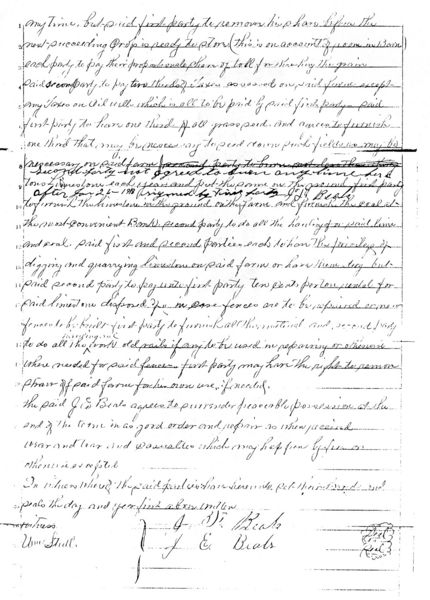 any time. but said first party to remove his share before the
next succeeding Crop is ready to stor (this is on account of room in Barn
each party to pay their proportionate share of toll for threshing the grain
said second party to pay two thirds of taxes assessed on said farm except
any Taxes on Oil well which is all to be paid by said first party - said
first party to have one third of all grass seed. and agrees to furnish
one third that may be necessary to seed down such fields as may be
necessary on said farm
second party not agreed to burn any lime but
tons limestone each year and put the same in the ground first party
J. E. Beals
to furnish the limestone in the ground on the farm and furnish the coal at
the most convenient Bank second party to do all the hauling of said lime
and coal. said first and second parties each to have the privilege of
digging and quarrying limestone on said farm or have them dug but
said second party to pay unto first party ten cents per ton for
said limestone disposed of. in case fences are to be repaired or new
fences to be built first party to furnish all the material and second party
to do all the work old rails if any to be used in repairing or otherwise
where needed for said fences - first party may have the right to remove
straw off said farm for his own use, if needed.
the said J. E Beals agrees to surrender peaceable possession at the
end of the term in as good order and repair as when received
wear and tear and casualties which may happen by fire or
otherwise excepted
In witness whereof the said parties have hereunto set their hands and
seals the day and year first above written
witness
Wm. Stull.
J Beals
J E Beals
Seal
Seal